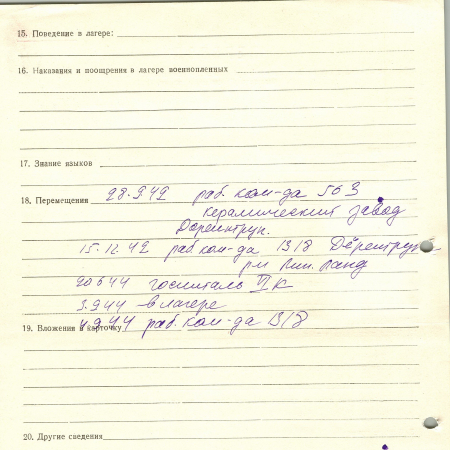 15. Поведение в лагере:
16. Наказания и поощрения в лагере военнопленных
17. Знание языков
18. Перемещения 28.9.42 раб. ком-да 563
керамический завод
Дорентруп.
15.12.42 раб ком-да 1318 Дёрентруп
р-н Лип. Ланд
20 6 44 госпиталь
3.9 44 в лагере
19. Вложения в карточку 4 9 44 раб. ком-да 1318
20. Другие сведения